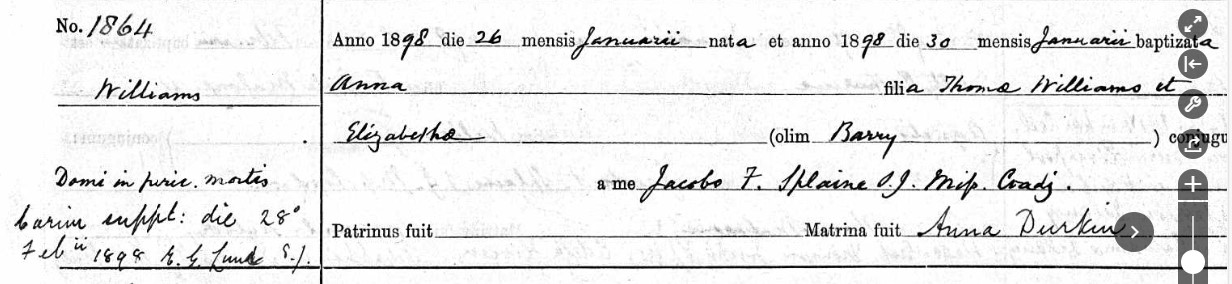 No. 1864
Anno 1898 die 26 mensis Januarii nata et anno 1898 die 30 mensis Januarii baptizata
Williams
Anna filia Thomæ Williams et
Elizabethæ (olim Barry ) conjugu
Domi in peric. mortis
a me Jacobo F. Splaine S.J. Miss. Coadj.
Carim suppt: die 28°
Patrinus fuit Matrina fuit Anna Durkin
Febii 1898 E. G. Lund S.J.